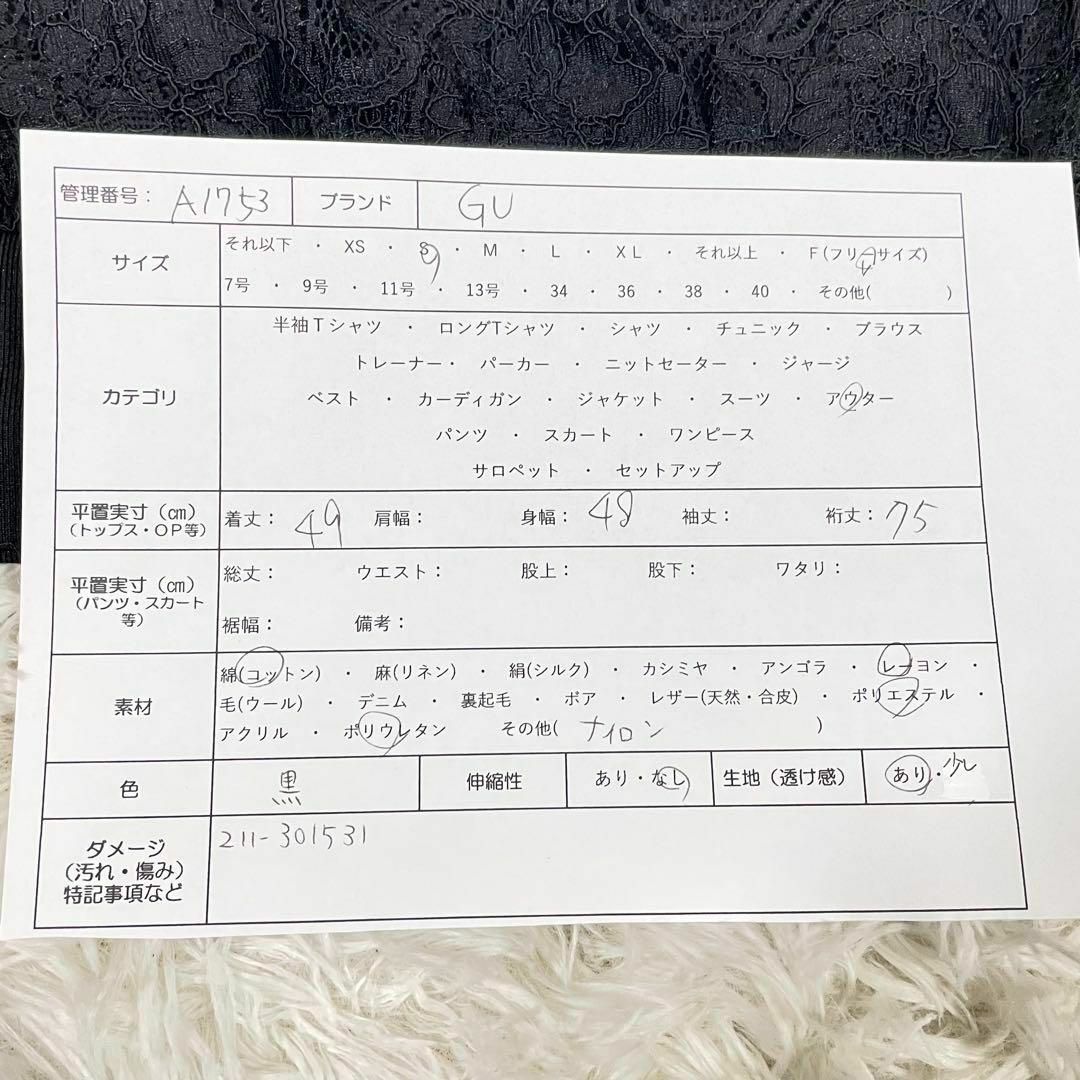 管理番号： A1753 ブランド GU
サイズ
それ以下 ・ XS ・ S ・ M ・ L ・ XL ・ それ以上 ・ F(フリーサイズ)
7号 ・ 9号 ・ 11号 ・ 13号 ・ 34 ・ 36 ・ 38 ・ 40 ・ その他( )
カテゴリ
半袖Tシャツ ・ ロングTシャツ ・ シャツ ・ チュニック ・ ブラウス
トレーナー・ パーカー ・ ニットセーター ・ ジャージ
ベスト ・ カーディガン ・ ジャケット ・ スーツ ・ アウター
パンツ ・ スカート ・ ワンピース
サロペット ・ セットアップ
平置実寸（㎝）
（トップス・OP等）
着丈： 49 肩幅： 身幅： 48 袖丈： 裄丈： 75
平置実寸（㎝）
（パンツ・スカート
等）
総丈： ウエスト： 股上： 股下： ワタリ：
裾幅： 備考：
素材
綿(コットン) ・ 麻(リネン) ・ 絹(シルク) ・ カシミヤ ・ アンゴラ ・ レーヨン ・
毛(ウール) ・ デニム ・ 裏起毛 ・ ボア ・ レザー(天然・合皮) ・ ポリエステル ・
アクリル ・ ポリウレタン その他( ナイロン )
色 黒 伸縮性 あり・なし 生地（透け感） あり・少し
ダメージ
（汚れ・傷み）
特記事項など
211-301531